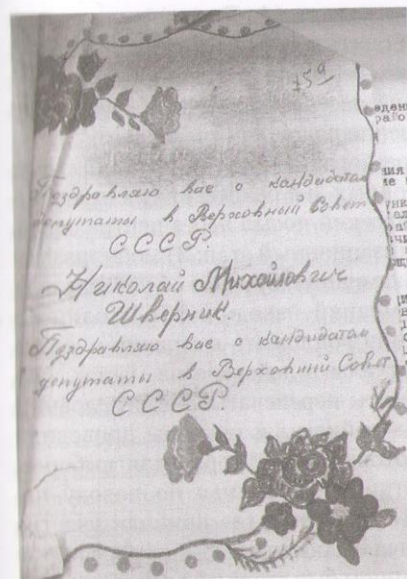 75а
Поздравляю вас о кандидатом
депутаты в Верховный Совет
СССР.
Николай Михайлович
Шверник.
Поздравляю вас о кандидатом
депутаты в Верховний Совет
СССР.